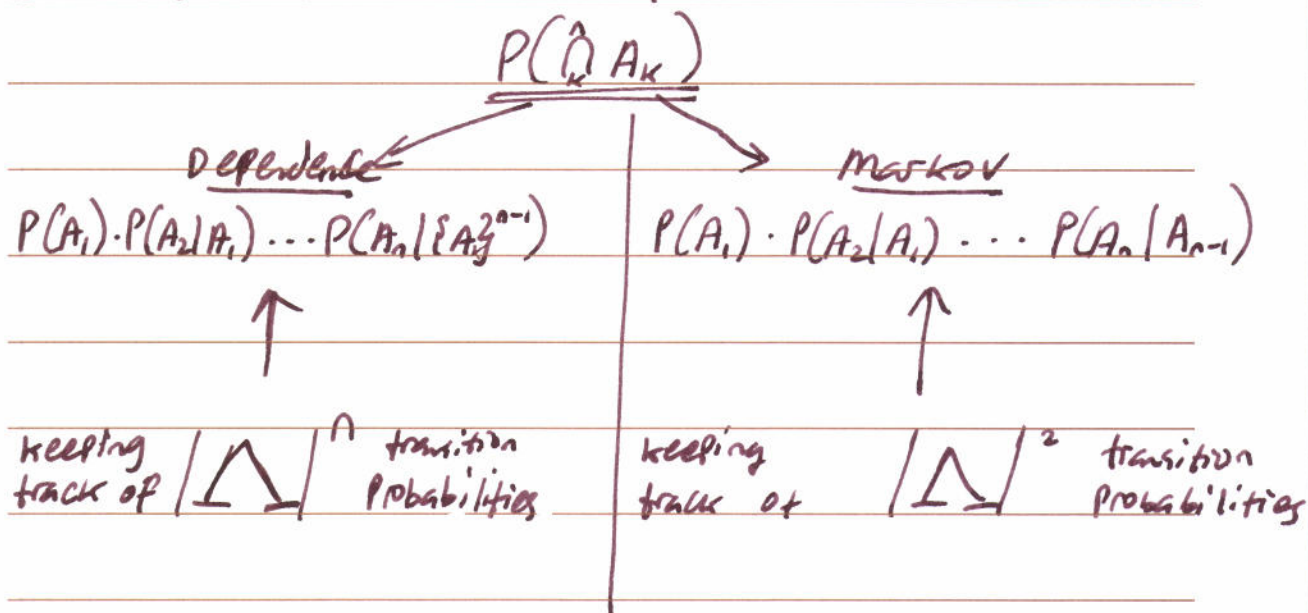 P(∩ₖⁿ Aₖ)
Dependence
P(A₁)·P(A₂|A₁) ··· P(Aₙ|{Aⱼ}ⁿ⁻¹)
keeping track of |Λ|ⁿ transition probabilities
Markov
P(A₁) · P(A₂|A₁) · ··· P(Aₙ|Aₙ₋₁)
keeping track of |Λ|² transition probabilities